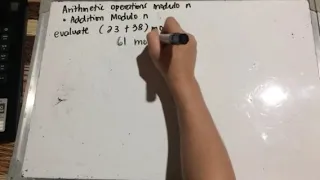 Arithmetic operations modulo n
• Addition Modulo n
evaluate (23 + 38) mo
61 mo